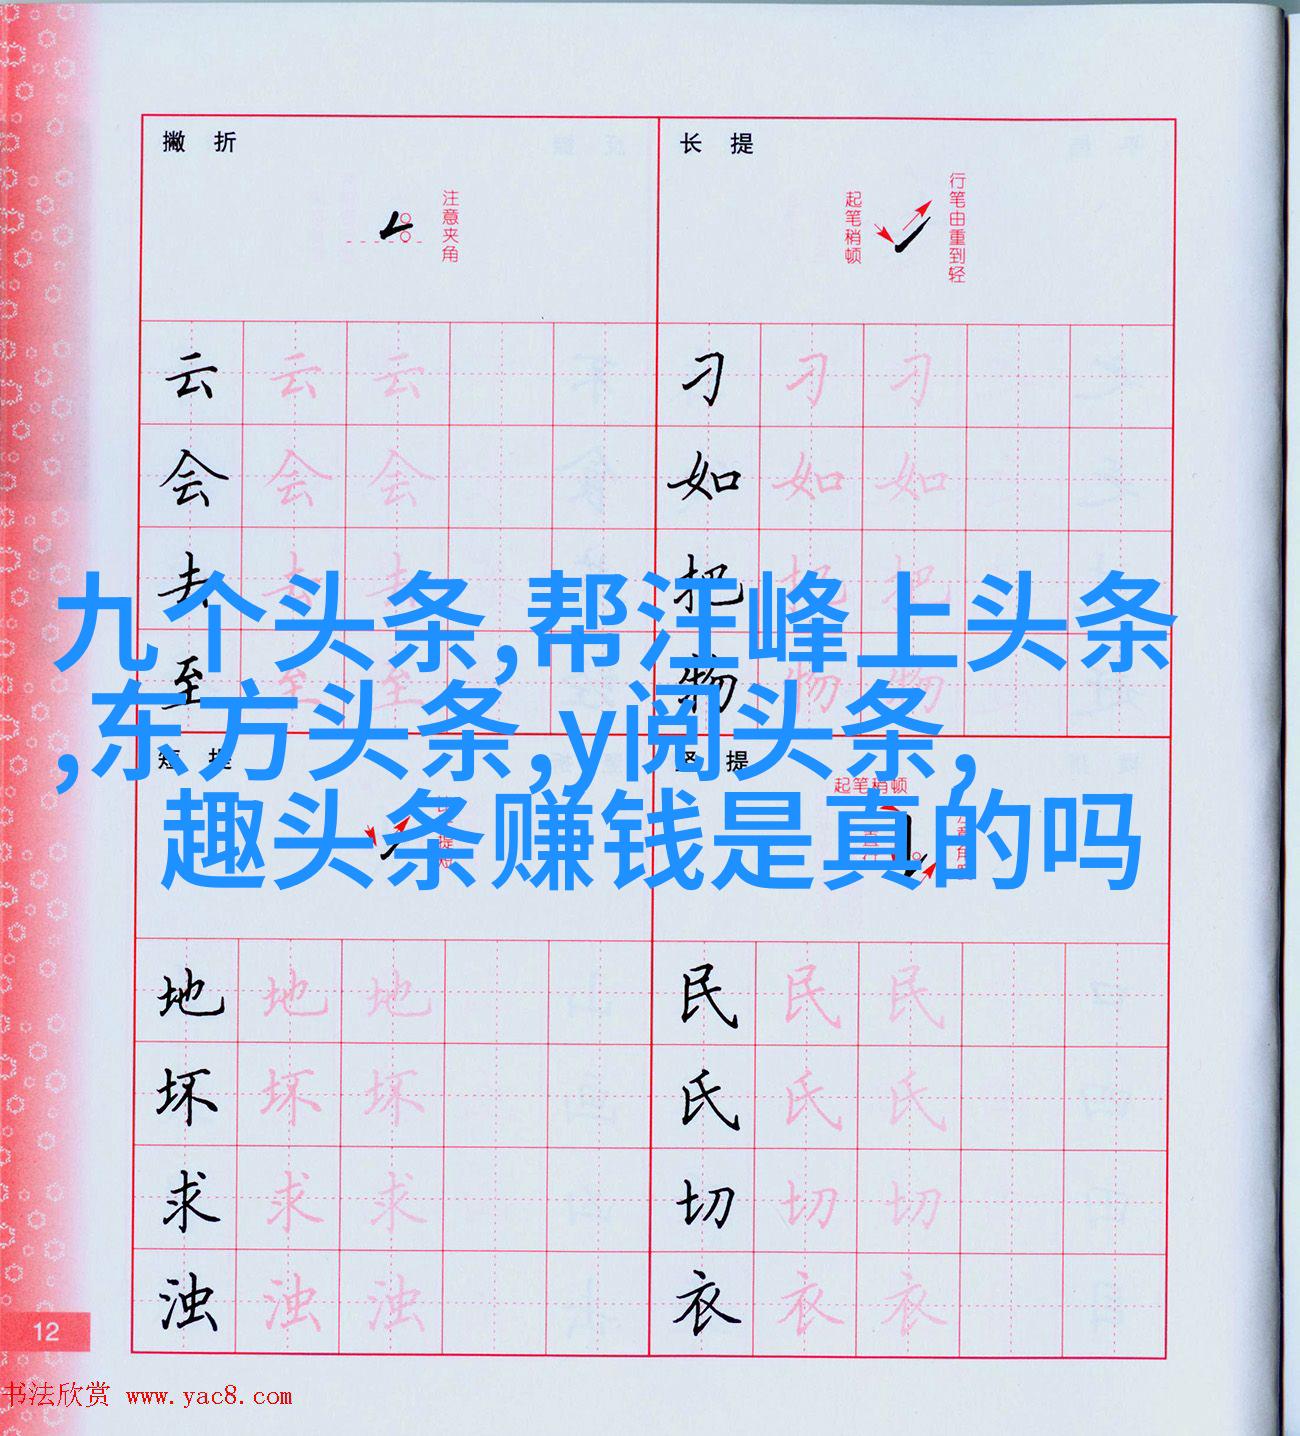 撇 折
注意夹角
长 提
起笔稍顿
行笔由重到轻
云 云 云
会 会 会
去 去 去
至 至 至
刁 刁 刁
如 如 如
把 把 把
物 物 物
九个头条,帮汪峰上头条
,东方头条,y阅头条,
趣头条赚钱是真的吗
短 提
竖 提
起笔稍顿
地 地 地
坏 坏 坏
求 求 求
浊 浊 浊
民 民 民
氏 氏 氏
切 切 切
衣 衣 衣
12
书法欣赏 www.yac8.com